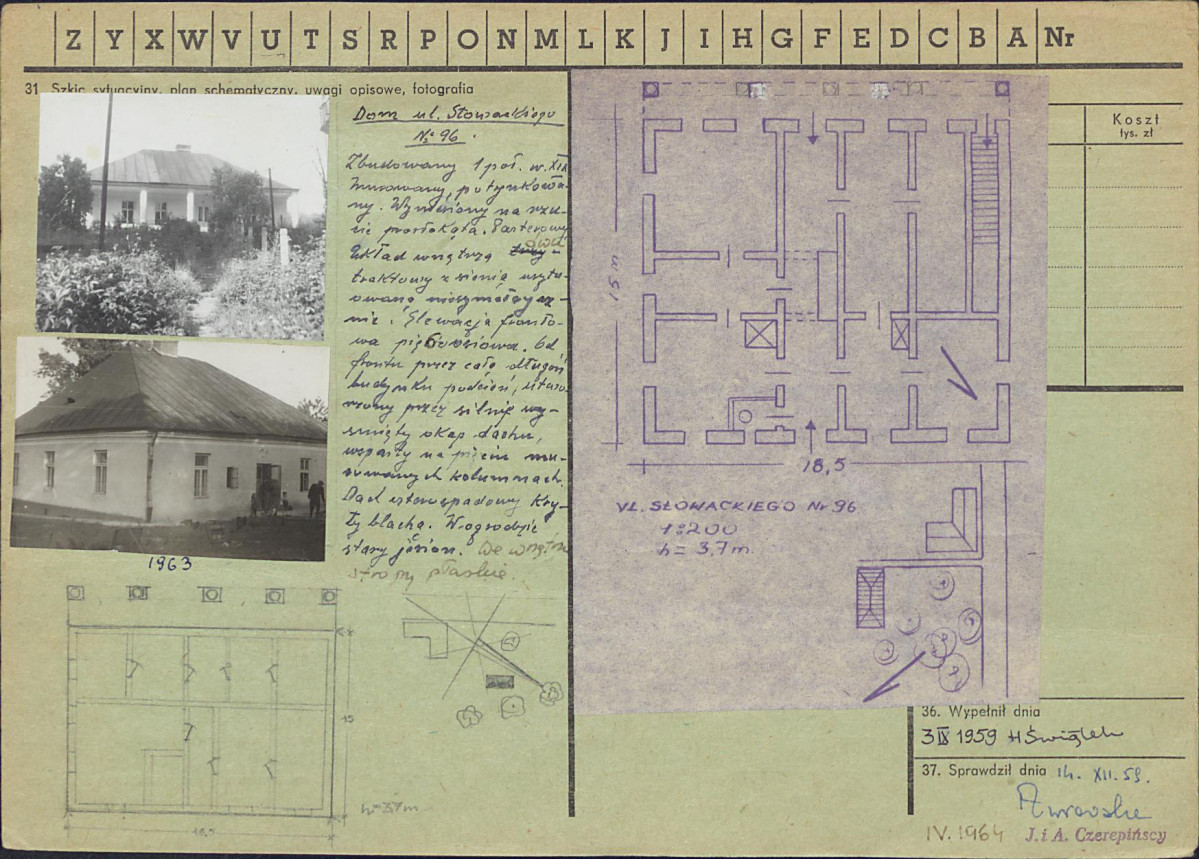 Z Y X W V U T S R P O N M L K J I H G F E D C B A Nr
31 Szkic sytuacyjny, plan schematyczny, uwagi opisowe, fotografia
Dom ul. Słowackiego
Nr 96.
Zbudowany 1 poł. w. XIX
Murowany, potynkowa-
ny. Wzniesiony na rzu-
cie prostokąta. Parterowy
Układ wnętrza dwu-
traktowy z sienią usytu-
owaną niesymetrycz-
nie. Elewacja fronto-
wa pięcioosiowa. Od
frontu przez całą długość
budynku podcień, utwo-
rzony przez silnie wy-
sunięty okap dachu,
wsparty na pięciu mu-
rowanych kolumnach.
Dach czterospadowy kry-
ty blachą. W ogrodzie
stary jesion. We wnętrzu
stropy płaskie.
1963
15
18,5
h=3,7m
15 m
18,5
UL. SŁOWACKIEGO Nr 96
1:200
h= 3,7m.
Koszt
tys. zł
36. Wypełnił dnia
3 IX 1959 H Świątek
37. Sprawdził dnia 14. XII. 59.
IV. 1964 J. i A. Czerepińscy